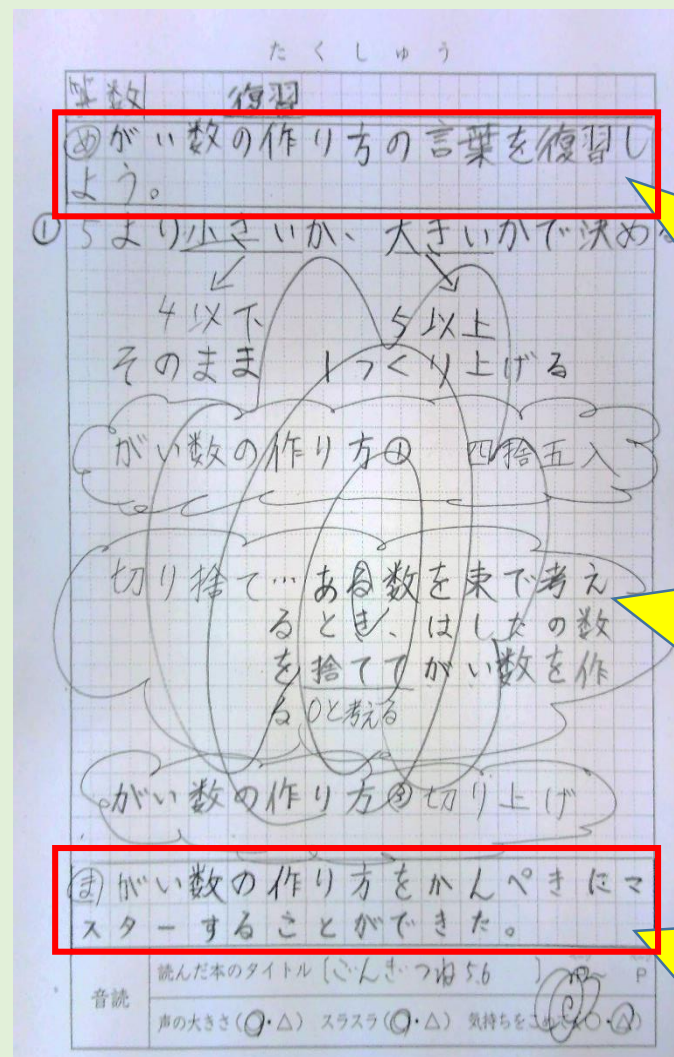 たくしゅう
算数 復習
めがい数の作り方の言葉を復習し
よう。
① 5より小さいか、大きいかで決める
4以下 5以上
そのまま 1つくり上げる
がい数の作り方① 四捨五入
切り捨て…ある数を束で考え
るとき、はしたの数
を捨ててがい数を作
る 0と考える
がい数の作り方② 切り上げ
まがい数の作り方をかんぺきにマ
スターすることができた。
音読
読んだ本のタイトル〔ごんぎつね5.6 〕 P
声の大きさ(○・△) スラスラ(○・△) 気持ちをこめて(○・△)